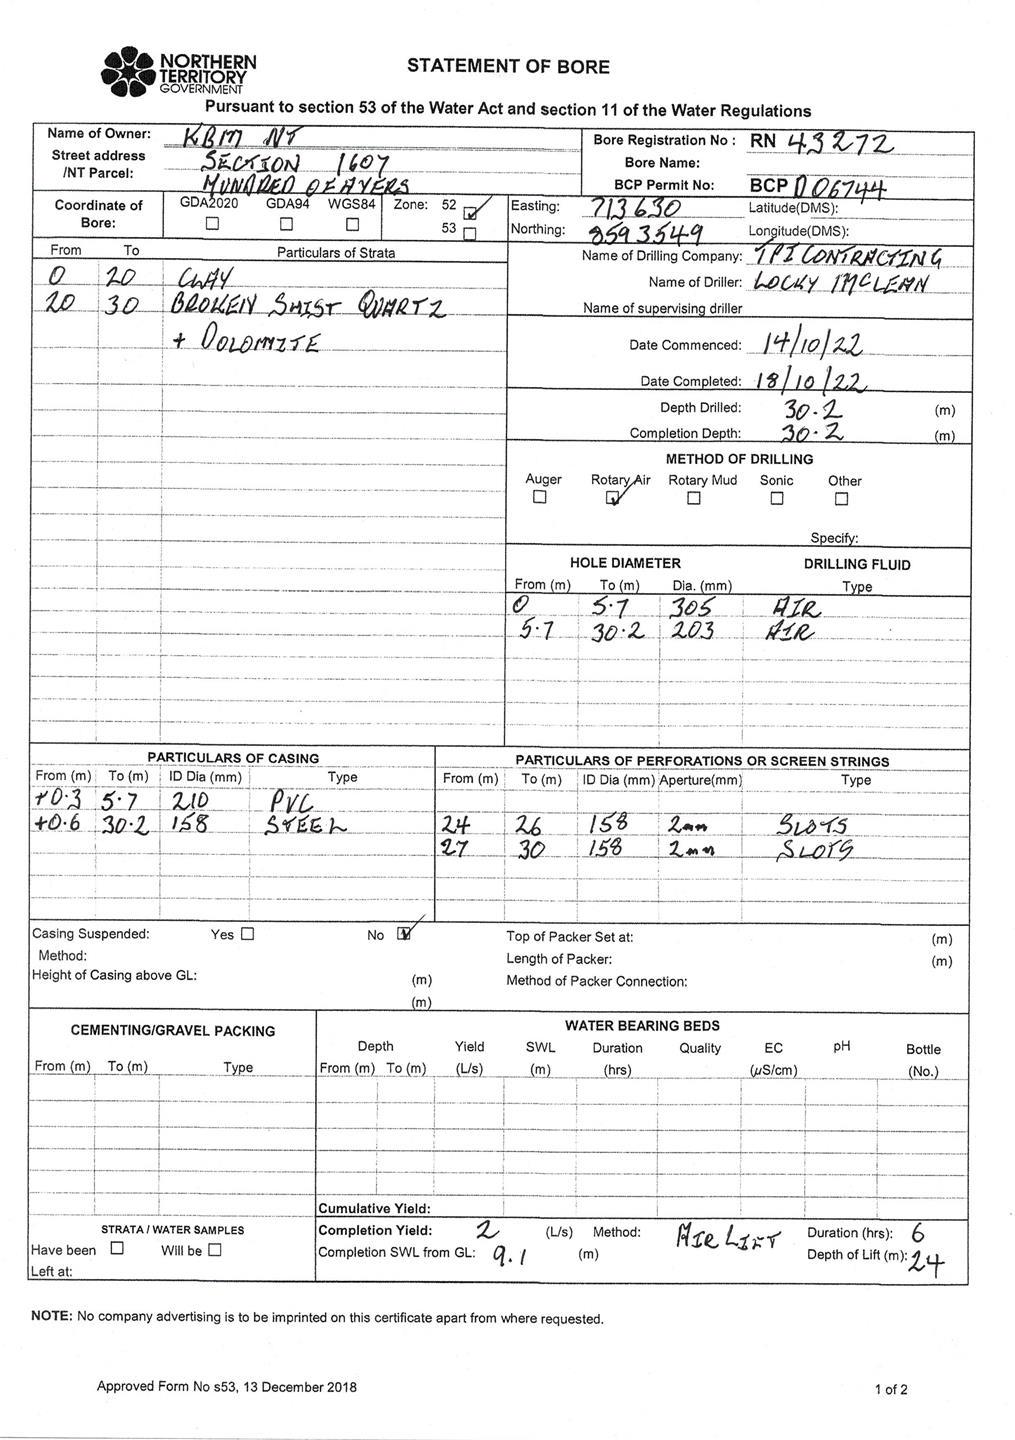 NORTHERN
TERRITORY
GOVERNMENT
STATEMENT OF BORE
Pursuant to section 53 of the Water Act and section 11 of the Water Regulations
Name of Owner: KBM NT
Street address /NT Parcel: SECTION 1607
HUNDRED OF AYERS
Bore Registration No : RN 43272
Bore Name:
BCP Permit No: BCP D06744
Coordinate of Bore: GDA2020 ☐ GDA94 ☐ WGS84 ☐ Zone: 52 ☑ 53 ☐
Easting: 713630 Latitude(DMS):
Northing: 8593549 Longitude(DMS):
From To Particulars of Strata
0 20 CLAY
20 30 BROKEN SHIST QUARTZ
+ DOLOMITE
Name of Drilling Company: TPI CONTRACTING
Name of Driller: LOCKY MCLEAN
Name of supervising driller
Date Commenced: 14/10/22
Date Completed: 18/10/22
Depth Drilled: 30.2 (m)
Completion Depth: 30.2 (m)
METHOD OF DRILLING
Auger Rotary Air Rotary Mud Sonic Other
☐ ☑ ☐ ☐ ☐
Specify:
HOLE DIAMETER DRILLING FLUID
From (m) To (m) Dia. (mm) Type
0 5.7 305 AIR
5.7 30.2 203 AIR
PARTICULARS OF CASING
From (m) To (m) ID Dia (mm) Type
+0.3 5.7 210 PVC
+0.6 30.2 158 STEEL
PARTICULARS OF PERFORATIONS OR SCREEN STRINGS
From (m) To (m) ID Dia (mm) Aperture(mm) Type
24 26 158 2mm SLOTS
27 30 158 2mm SLOTS
Casing Suspended: Yes ☐ No ☑
Method:
Height of Casing above GL: (m)
(m)
Top of Packer Set at: (m)
Length of Packer: (m)
Method of Packer Connection:
CEMENTING/GRAVEL PACKING
From (m) To (m) Type
WATER BEARING BEDS
Depth Yield SWL Duration Quality EC pH Bottle
From (m) To (m) (L/s) (m) (hrs) (µS/cm) (No.)
Cumulative Yield:
STRATA / WATER SAMPLES
Have been ☐ Will be ☐
Left at:
Completion Yield: 2 (L/s) Method: AIR LIFT Duration (hrs): 6
Completion SWL from GL: 9.1 (m) Depth of Lift (m): 24
NOTE: No company advertising is to be imprinted on this certificate apart from where requested.
Approved Form No s53, 13 December 2018
1 of 2